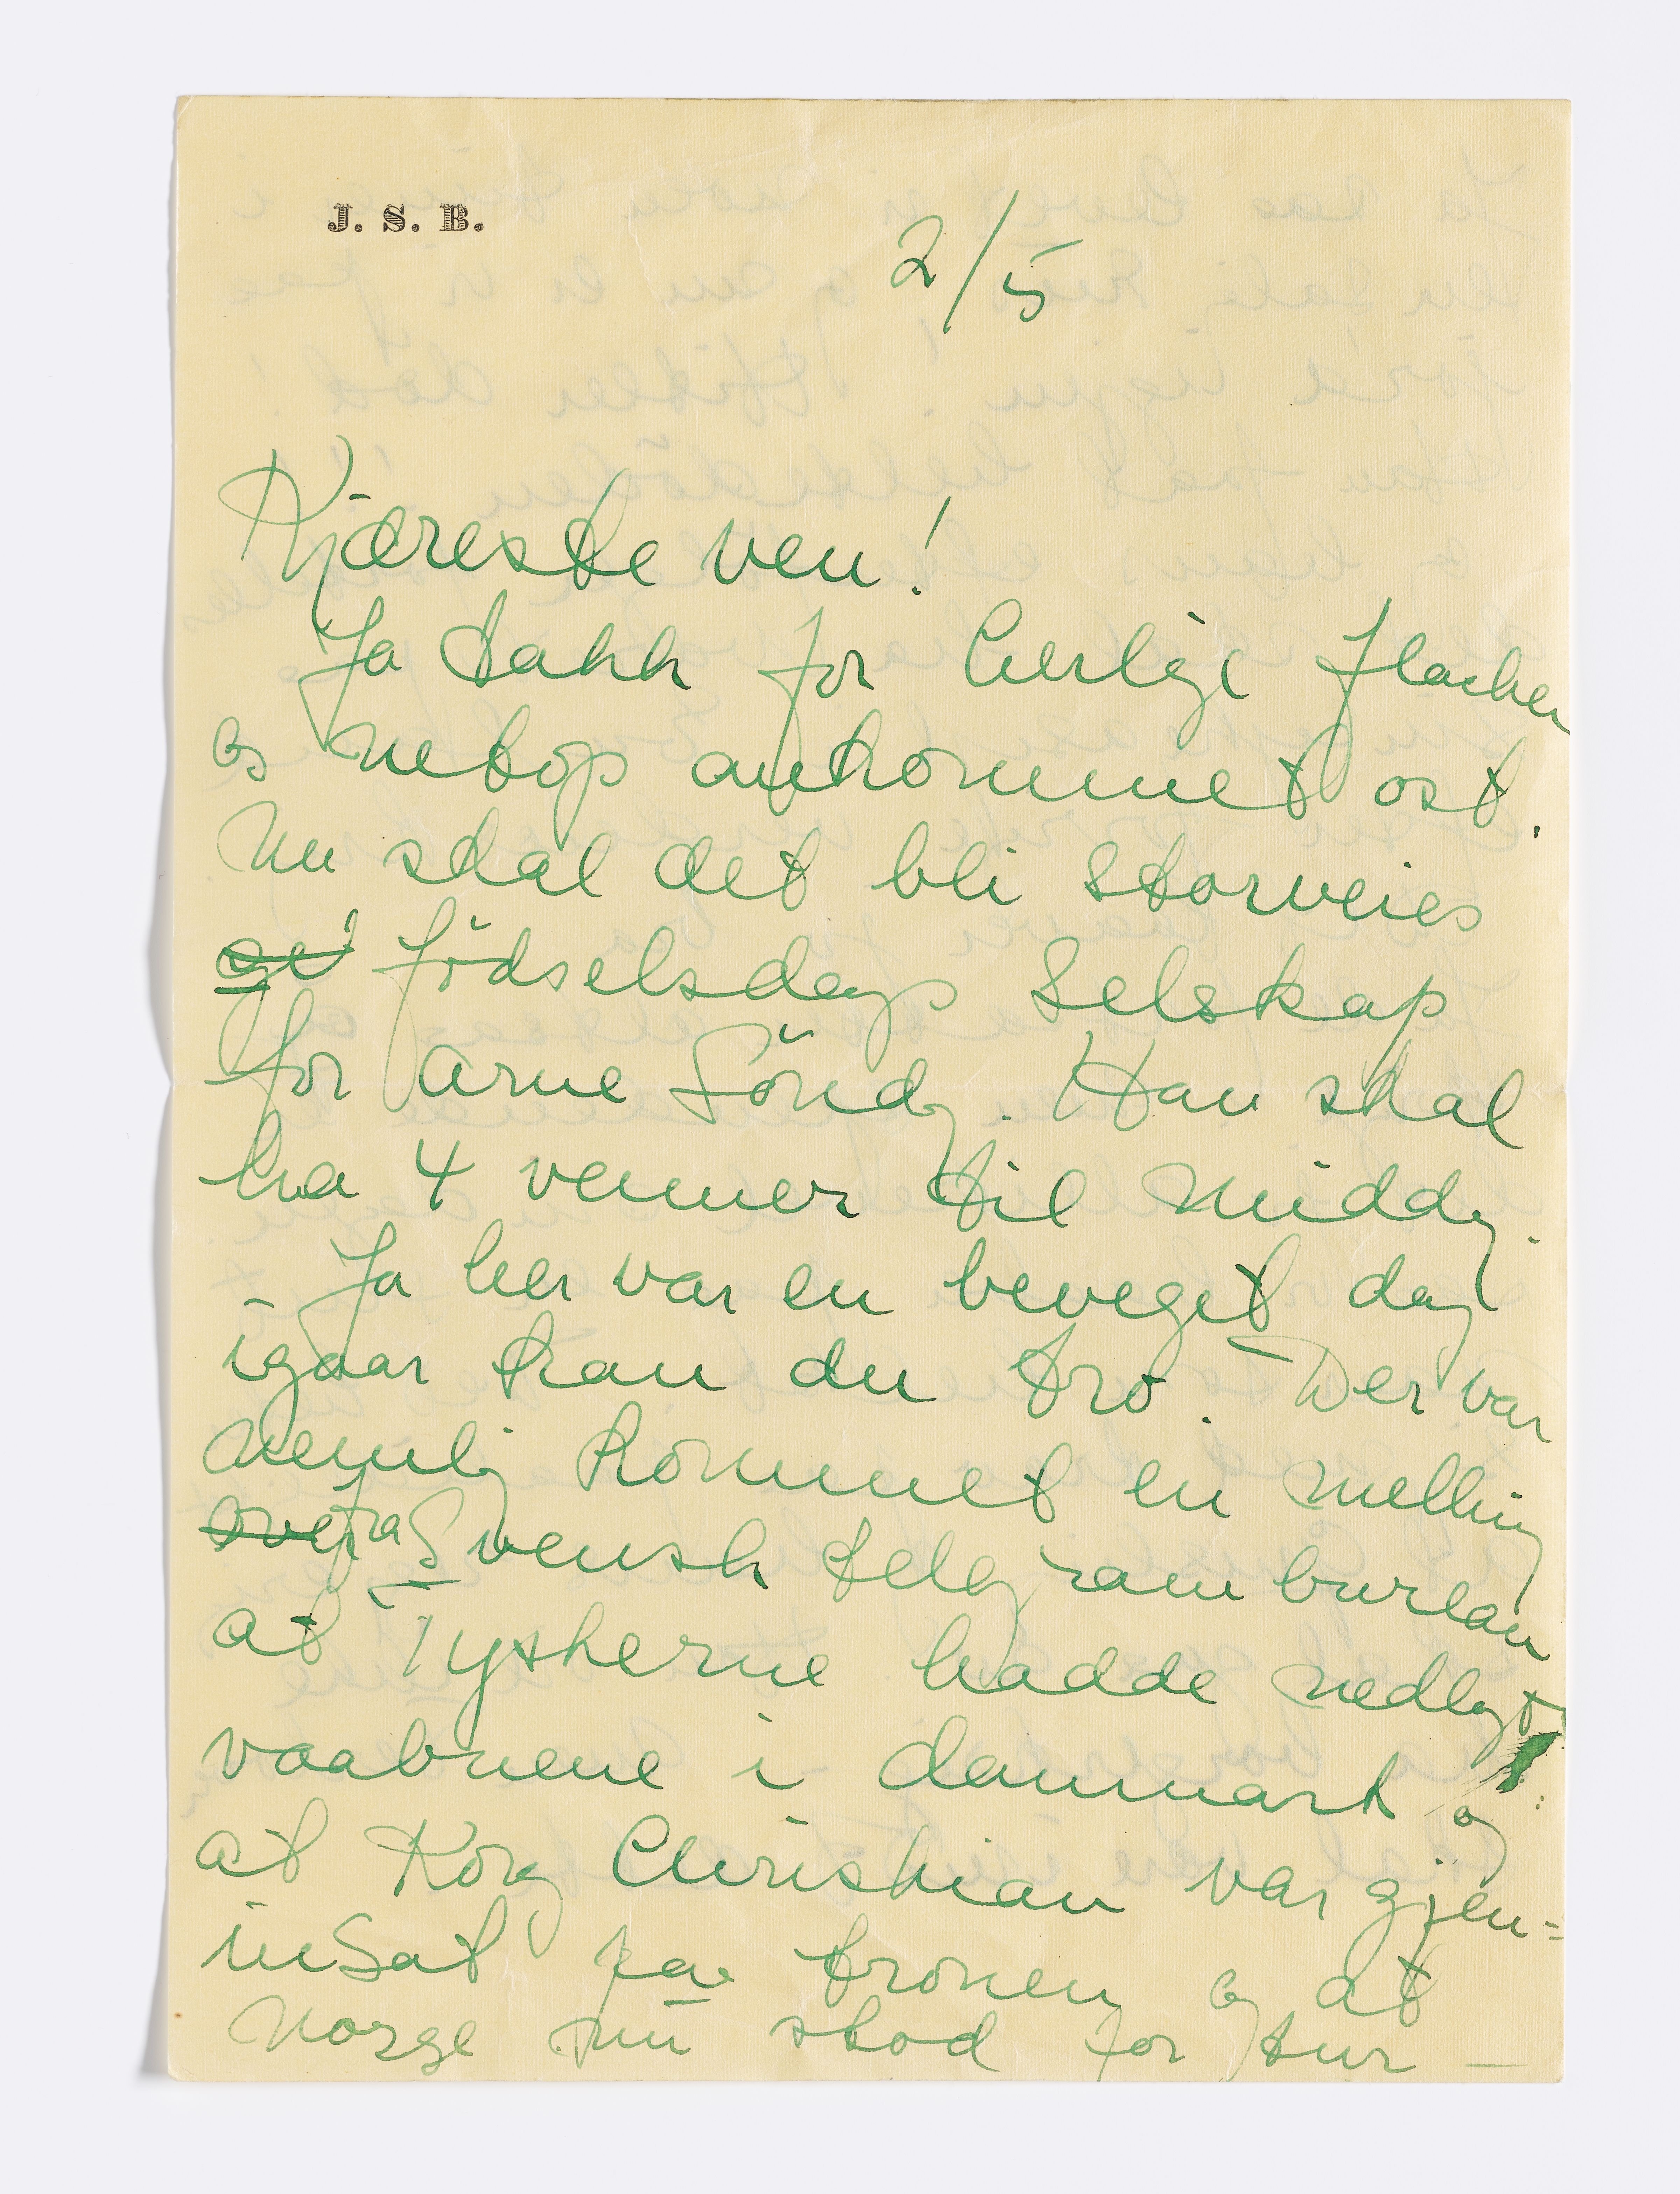 J. S. B.
2/5
Kjæreste ven!
Ja takk for herlige flacker
og netop ankommet ost.
Nu skal det bli storveies
födselsdags selskap
for Arne Sönd. Han skal
ha 4 venner til midd.
Ja her var en beveget dag
igaar kan du tro. Der var
nemlig kommet en melling
over fra Svensk telegram bureau
at Tyskerne hadde nedlagt
vaabnene i danmark og
at Kong Christian var gjen=
insat paa tronen og at
Norge nu stod for tur –